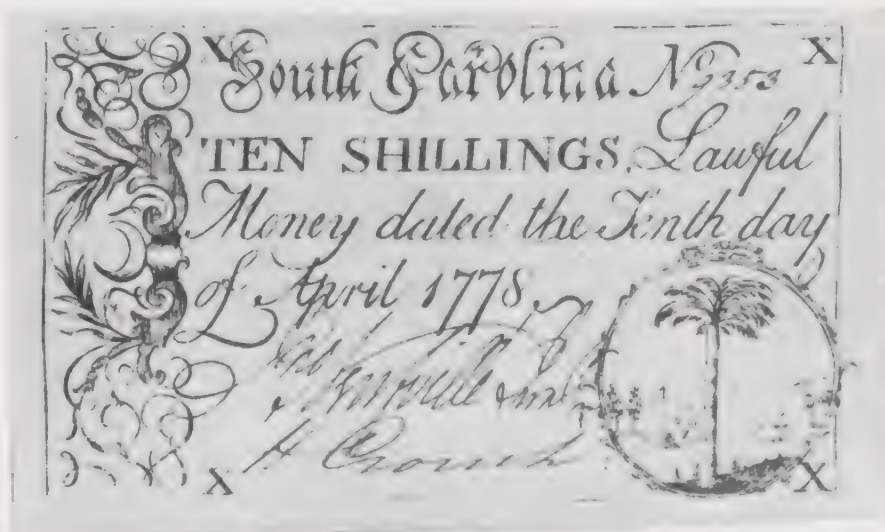 X South Carolina No 9353 X
TEN SHILLINGS. Lawful
Money dated the Tenth day
of April 1778.
H Crouch
X X